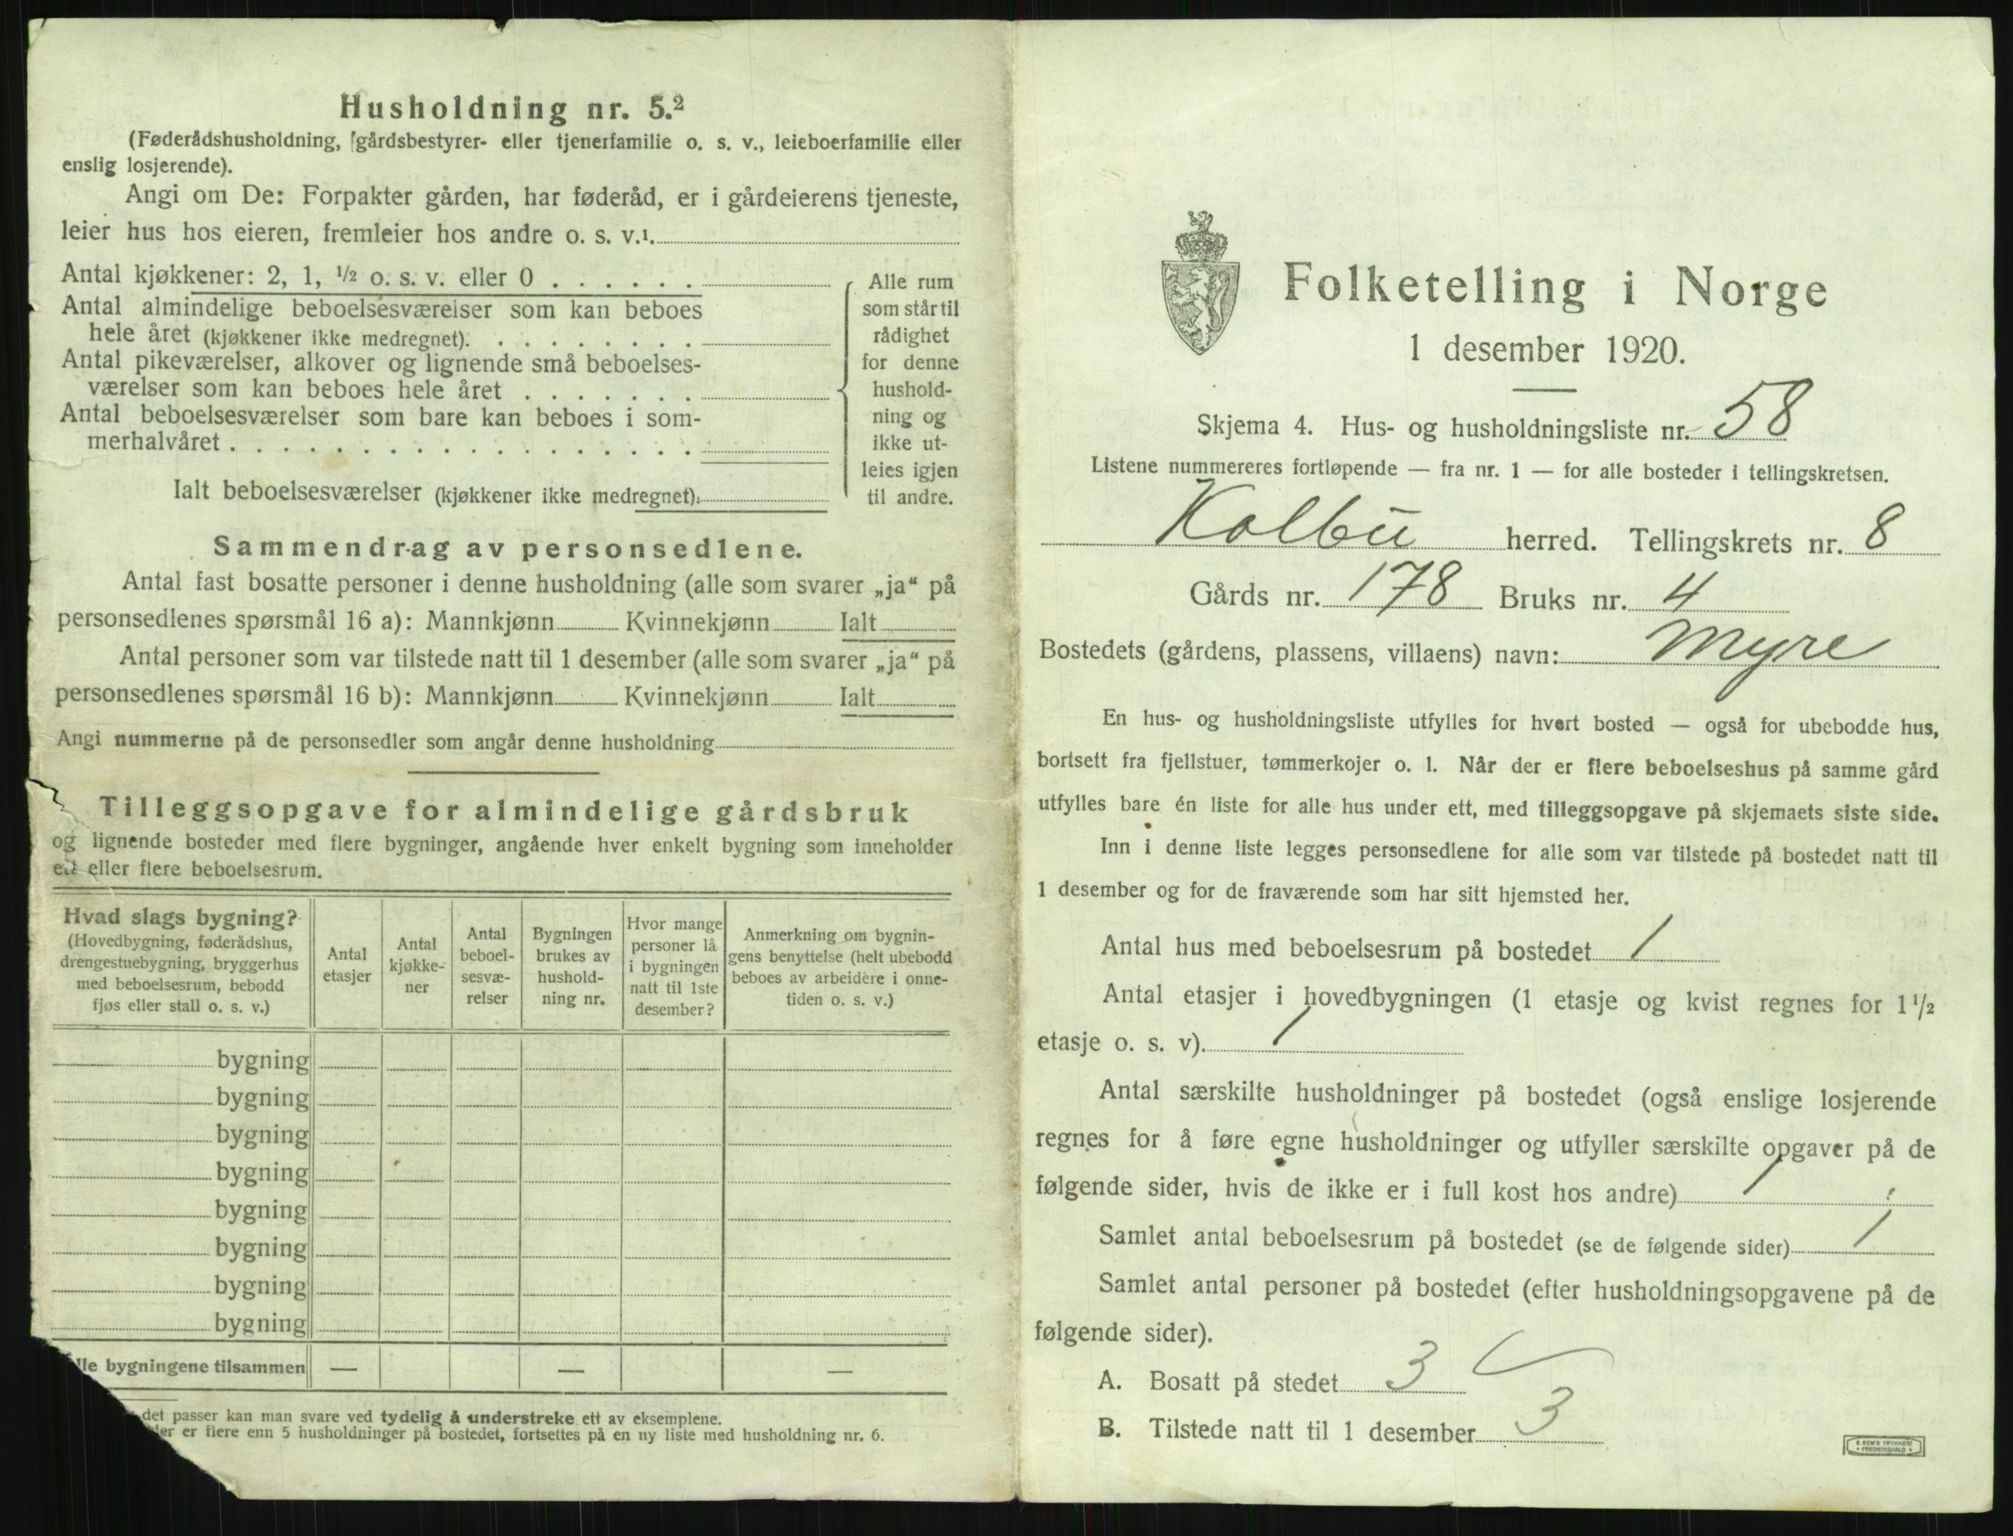 Husholdning nr. 5.²
(Føderådshusholdning, gårdsbestyrer- eller tjenerfamilie o. s. v., leieboerfamilie eller
enslig losjerende).
Angi om De: Forpakter gården, har føderåd, er i gårdeierens tjeneste,
leier hus hos eieren, fremleier hos andre o. s. v.¹.
Antal kjøkkener: 2, 1, ½ o. s. v. eller 0 . . . . . .
Antal almindelige beboelsesværelser som kan beboes
hele året (kjøkkener ikke medregnet). . . . . . . . .
Antal pikeværelser, alkover og lignende små beboelses-
værelser som kan beboes hele året . . . . . . .
Antal beboelsesværelser som bare kan beboes i som-
merhalvåret . . . . . . . . . . . . . . . . . .
Ialt beboelsesværelser (kjøkkener ikke medregnet).
Alle rum
som står til
rådighet
for denne
hushold-
ning og
ikke ut-
leies igjen
til andre.
Sammendrag av personsedlene.
Antal fast bosatte personer i denne husholdning (alle som svarer „ja“ på
personsedlenes spørsmål 16 a): Mannkjønn Kvinnekjønn Ialt
Antal personer som var tilstede natt til 1 desember (alle som svarer „ja“ på
personsedlenes spørsmål 16 b): Mannkjønn Kvinnekjønn Ialt
Angi nummerne på de personsedler som angår denne husholdning
Tilleggsopgave for almindelige gårdsbruk
og lignende bosteder med flere bygninger, angående hver enkelt bygning som inneholder
ett eller flere beboelsesrum.
Hvad slags bygning?
(Hovedbygning, føderådshus,
drengestuebygning, bryggerhus
med beboelsesrum, bebodd
fjøs eller stall o. s. v.)
Antal
etasjer
Antal
kjøkke-
ner
Antal
beboel-
sesvæ-
relser
Bygningen
brukes av
hushold-
ning nr.
Hvor mange
personer lå
i bygningen
natt til 1ste
desember?
Anmerkning om bygnin-
gens benyttelse (helt ubebodd
beboes av arbeidere i onne-
tiden o. s. v.)
bygning
bygning
bygning
bygning
bygning
bygning
bygning
bygning
lle bygningene tilsammen — — —
det passer kan man svare ved tydelig å understreke ett av eksemplene.
der er flere enn 5 husholdninger på bostedet, fortsettes på en ny liste med husholdning nr. 6.
Folketelling i Norge
1 desember 1920.
Skjema 4. Hus- og husholdningsliste nr. 58
Listene nummereres fortløpende — fra nr. 1 — for alle bosteder i tellingskretsen.
Kolbu herred. Tellingskrets nr. 8
Gårds nr. 178 Bruks nr. 4
Bostedets (gårdens, plassens, villaens) navn: Myre
En hus- og husholdningsliste utfylles for hvert bosted — også for ubebodde hus,
bortsett fra fjellstuer, tømmerkojer o. l. Når der er flere beboelseshus på samme gård
utfylles bare én liste for alle hus under ett, med tilleggsopgave på skjemaets siste side.
Inn i denne liste legges personsedlene for alle som var tilstede på bostedet natt til
1 desember og for de fraværende som har sitt hjemsted her.
Antal hus med beboelsesrum på bostedet 1
Antal etasjer i hovedbygningen (1 etasje og kvist regnes for 1½
etasje o. s. v). 1
Antal særskilte husholdninger på bostedet (også enslige losjerende
regnes for å føre egne husholdninger og utfyller særskilte opgaver på de
følgende sider, hvis de ikke er i full kost hos andre) 1
Samlet antal beboelsesrum på bostedet (se de følgende sider) 1
Samlet antal personer på bostedet (efter husholdningsopgavene på de
følgende sider).
A. Bosatt på stedet 3
B. Tilstede natt til 1 desember 3
E. SEM'S TRYKKERI
FREDRIKSHALD